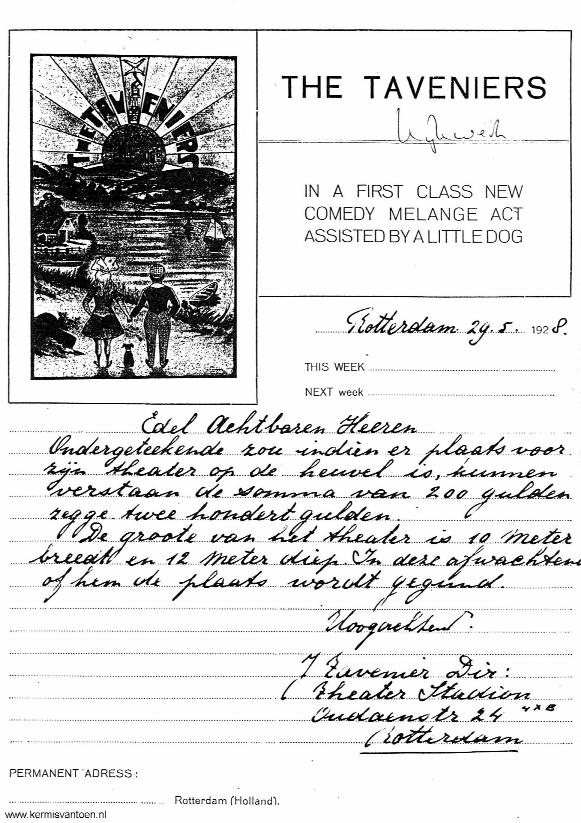 THE TAVENIERS
THE TAVENIERS
IN A FIRST CLASS NEW
COMEDY MELANGE ACT
ASSISTED BY A LITTLE DOG
Rotterdam 29.5. 1928.
THIS WEEK
NEXT week
Edel Achtbaren Heeren
Ondergeteekende zou indien er plaats voor
zijn theater op de heuvel is, kunnen
verstaan de somma van 200 gulden
zegge twee hondert gulden.
De groote van het theater is 10 Meter
breedt en 12 Meter diep. In deze afwachtend
of hem de plaats wordt gegund.
Hoogachtend.
J Tavenier Dir:
Theater Stadion
Oudaenstr 24
Rotterdam
PERMANENT ADRESS:
Rotterdam (Holland).
www.kermisvantoen.nl